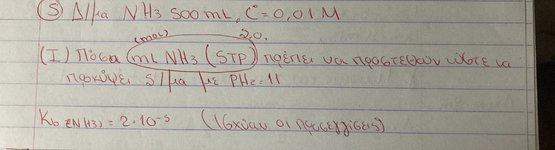 ⑤ Δ/μα NH3 500 mL, C = 0,01 M
(mol) 2.0.
(I) Πόσα mL NH3 (STP) πρέπει να προστεθούν ώστε να
προκύψει δ/μα με PH = 11
Kb (NH3) = 2·10⁻⁵ (ισχύουν οι προσεγγίσεις)